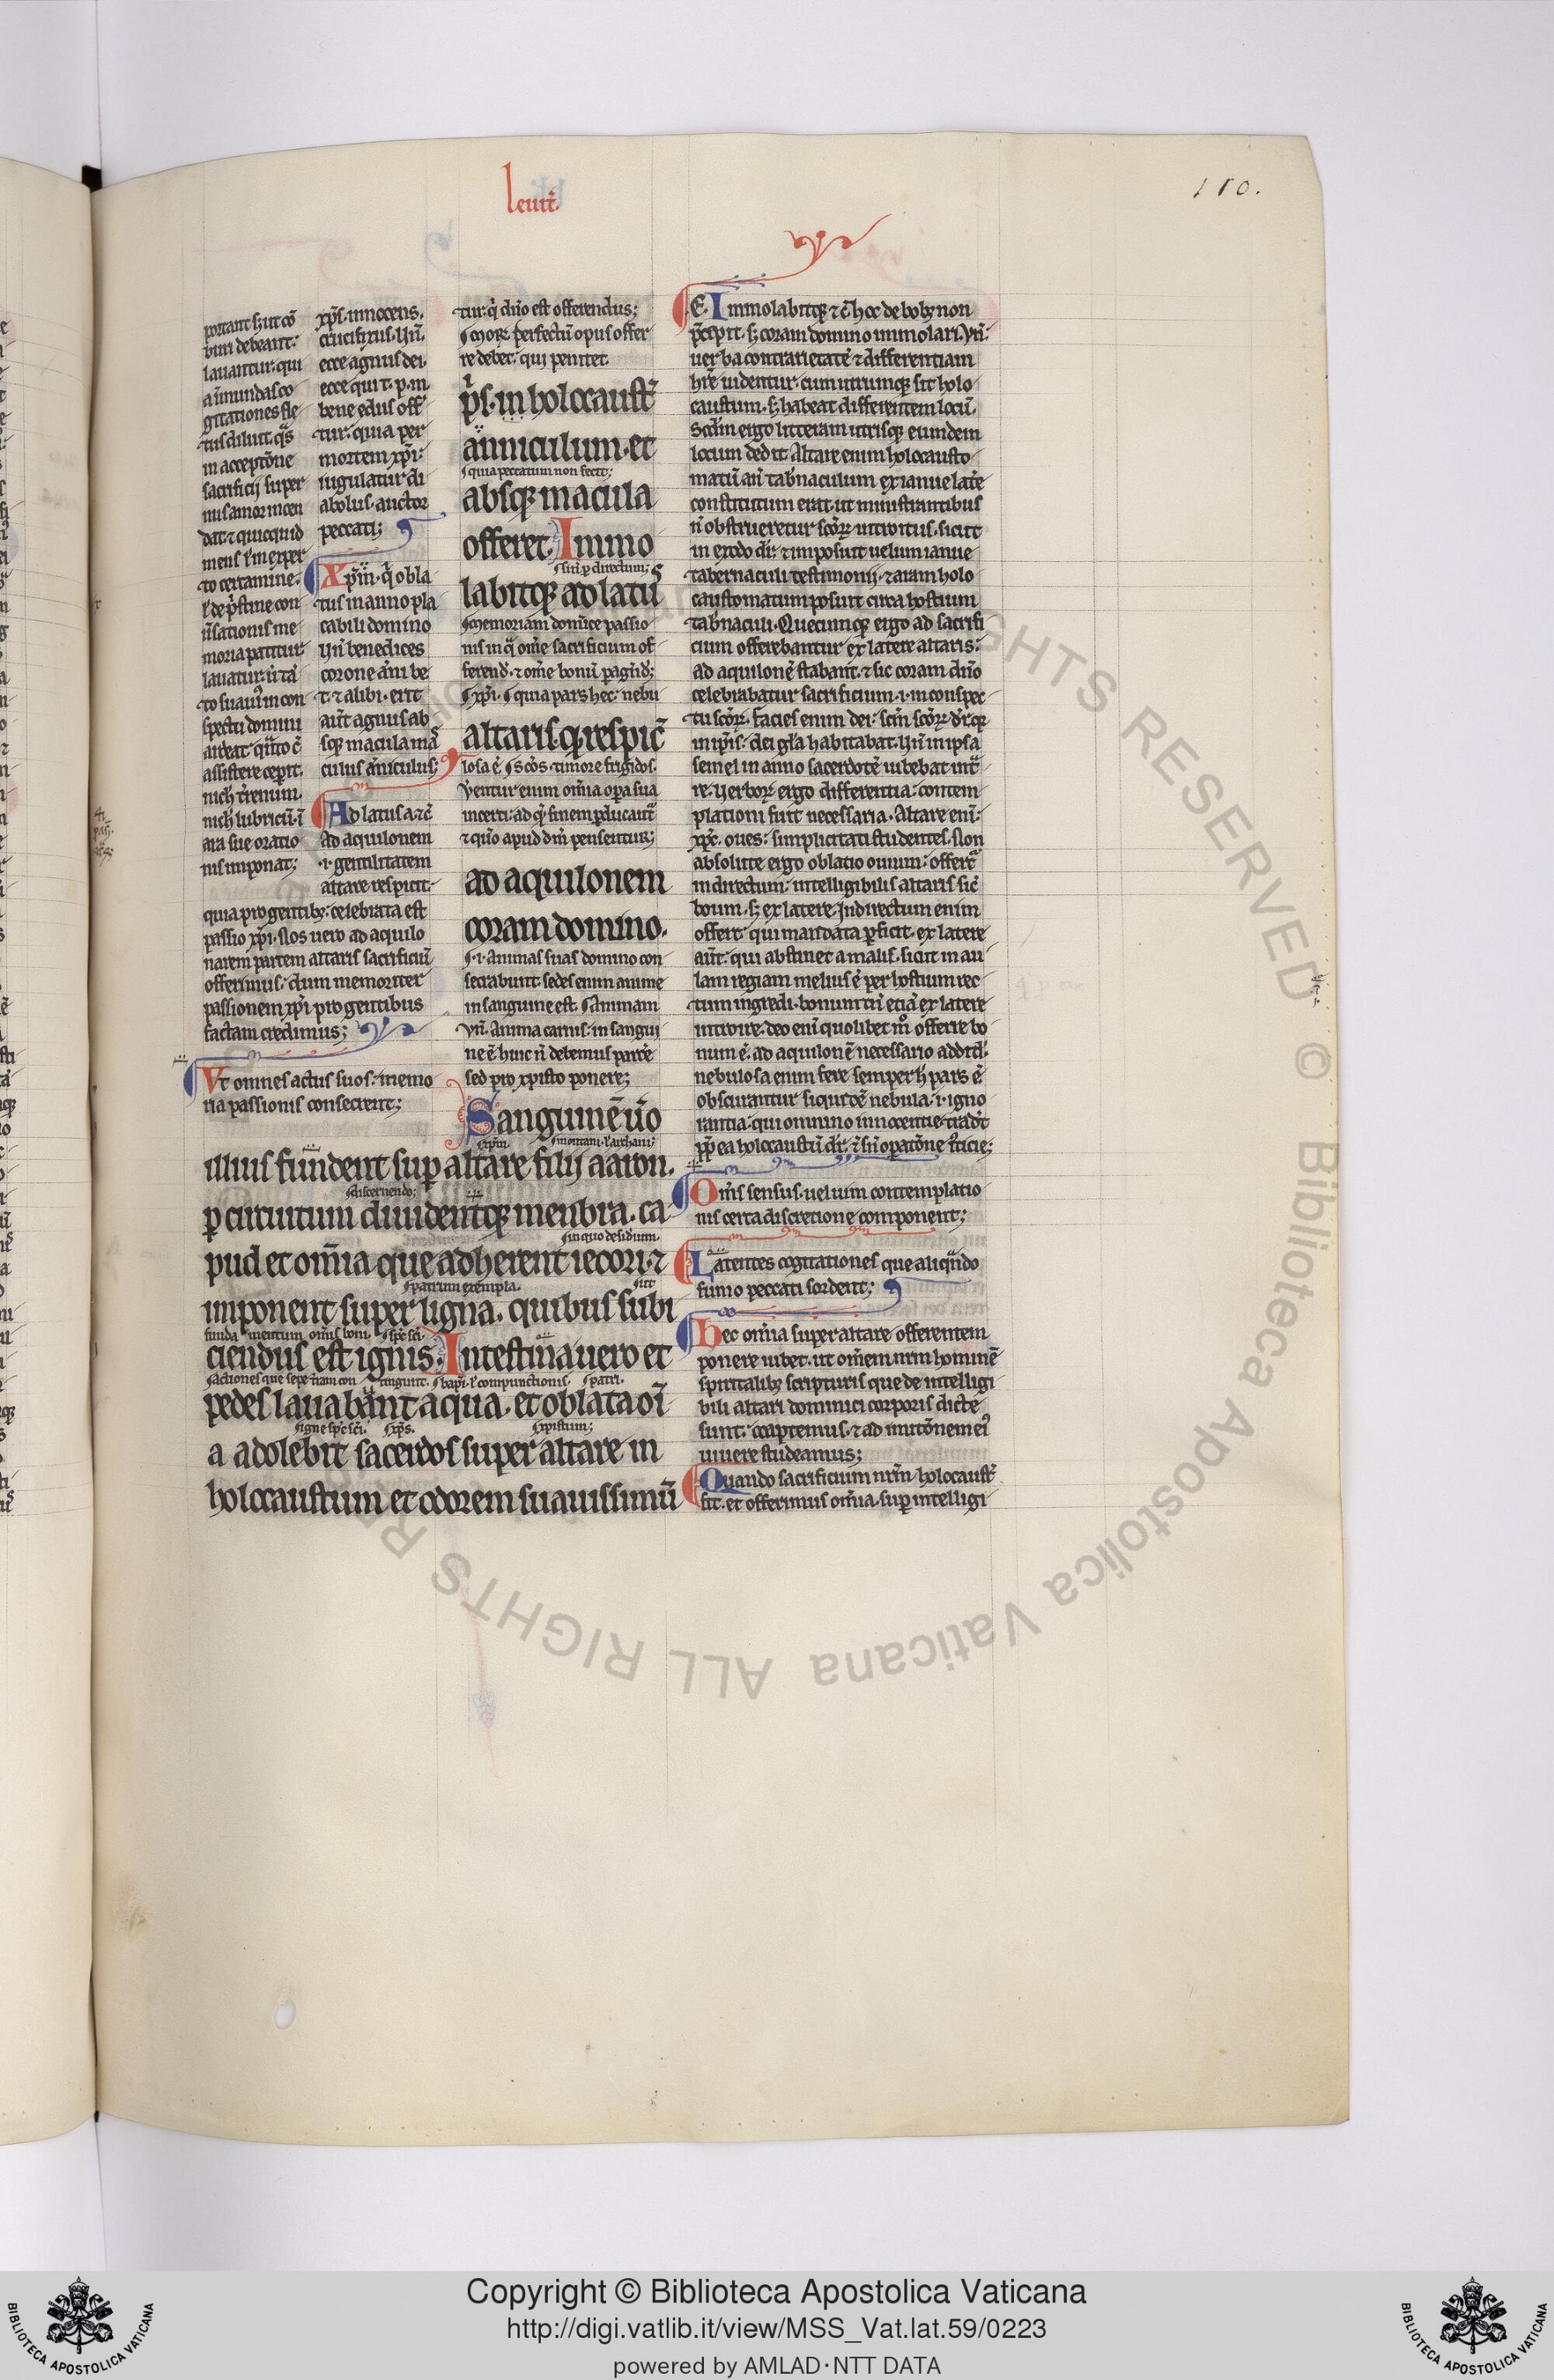 leuit̄.
110.
portant ꝫ ut cō
buri debeant:
lauantur: qui
a īmundas co
gitationes fle
tus diluit. qͣs
in acceptōne
sacrificij super
nus amor incen
dat. ⁊ quicquid
mens ł in exper
to certamine:
ł de pͥstine con
ūsationis me
moria patitur
lauatur: ut tā
to suauiꝰ in con
spectu domini
ardeat. quāto ē
assistere cepit.
nich̄ t̄renum.
nich̄ lubricū: ī
ara sue oratio
nis imponat;
xp̄s. innocens.
crucifixus. Vn̄.
ecce agnus dei.
ecce qui t. p. m
bene edus off̄
tur. quia per
mortem xp̄i:
iugulatur di
abolus. auctor
peccati;
Xp̄m. qͥ obla
tus in anno pla
cabili domino
Vn̄ benedices
corone āni be
t. ⁊ alibi. erit
aut̄ agnus ab
sqꝫ macula mas
culus āniculus;
Ad latus a. ⁊c̄
Ad aquilonem
.i. gentilitatem
altare respicit.
quia pro gentibꝫ: celebrata est
passio xp̄i. Nos uero ad aquilo
narem partem altaris sacrificiū
offerimus. dum memoriter
passionem xp̄i pro gentibus
factam credimus;
Vt omnes actus suos: memo
ria passionis consecrent;
tur. qͥ dn̄o est offerendus;
Mor. perfectū opus offer
re debet: qui penitet.
pͥs. in holocaust̄
āniculum. et
quia peccatum non fecit;
absqꝫ macula
offeret. Immo
labitqꝫ ad latus
memoriam dominice passio
nis in qͣ om̄e sacrificium of
ferend̄. ⁊ om̄e bonū pagend̄;
xp̄i. quia pars hec nebu
altaris. qͥ respic̄
losa ē. scōs. timore frigidos.
Verentur enim om̄ia opera sua
incerti: ad qͥ finem ꝑducant̄
⁊ quō apud dm̄ pensentur;
ad aquilonem
coram domino.
.i. animas suas domino con
secrabunt. sedes enim anime
in sanguine est. Animam
Vn̄. Anima carnis: in sangui
ne ē. hinc n̄ debemus parcere
sed pro xpisto ponere;
Sanguinē ūo
illius fundent suꝑ altare filij aaron.
discernendo;
ꝑ circuitum diuidentqꝫ menbra. ca
in quo desidium.
pud et om̄ia que adherent iecori. ⁊
patrum exempla.
imponent super ligna. quibus subi
fundamentum omnis boni. spc̄ sci.
ciendus est ignis. Intestina uero et
actiones que sepe terram contingunt. bapt̄. ł compunctionis. patri.
pedes lauabunt aqua. et oblata oī
igne spc̄ sci. xp̄s. xpistum;
a adolebit sacerdos super altare in
holocaustum et odorem suauissimū
E. Immolabitqꝫ ⁊c̄. hoc de bobꝫ non
p̄cepit. ꝫ coram domino immolari. Vn̄:
uerba contrarietatē ⁊ differentiam
hr̄e uidentur. cum utrumqꝫ sit holo
caustum. ꝫ habeat differentem locū.
Scd̄m ergo litteram utrisqꝫ eundem
locum dedit. Altare enim holocausto
matū an̄ tabnaculum ex ianue latere
constitutum erat. ut ministrantibus
n̄ obstrueretur scōꝝ introitus. sicut
in exodo dr̄. ⁊ imposuit uelum ianue
tabernaculi testimonij. ⁊ aram holo
caustomatum posuit circa hostium
tabnaculi. Quecumqꝫ ergo ad sacrifi
cium offerebantur ex latere altaris:
ad aquilonē stabant. ⁊ sic coram dn̄o
celebrabatur sacrificium. i. in conspec
tu scōꝝ. facies enim dei: scm̄ scōꝝ dr̄. qꝫ
in ipsis: dei gr̄a habitabat. Vn̄ in ipsa
semel in anno sacerdotē iubebat intͣ
re. Verboꝝ ergo differentia: contem
plationi fuit necessaria. Altare enī:
xpc̄. oues: simplicitati studentes. Non
absolute ergo oblatio ouium: offert̄
in directum: intelligibilis altaris sic̄
boum. ꝫ ex latere. Indirectum enim
offert: qui mandata ꝑficit. ex latere
aut̄: qui abstinet a malis. sicut in au
lam regiam melius ē per hostium rec
tum ingredi. bonum tn̄ eciā ex latere
introire. deo enī quolibet mͦ offerre bo
num ē. ad aquilonē necessario addit̄.
nebulosa enim fere semper h̄ pars ē.
obscurantur siquidē nebula. i. igno
rantia: qui omnino innocentie. tradūt
ꝓpt̄ea holocaustū dr̄.
Om̄s sensus. uelum contemplatio
nis certa discretione component;
Latentes cogitationes que aliqn̄do
fumo peccati sordent;
Hec om̄ia super altare offerentem
ponere iubet. ut om̄em nrm̄ hominē
spiritalibꝫ scripturis que de intelligi
bili altari dominici corporis dicte
sunt: coaptemus. ⁊ ad imitōnem eiꝰ
uiuere studeamus;
Quando sacrificium nrm̄ holocaust̄
fit. et offerimus om̄ia. suꝑ intelligi
Copyright © Biblioteca Apostolica Vaticana
http://digi.vatlib.it/view/MSS_Vat.lat.59/0223
powered by AMLAD·NTT DATA
BIBLIOTECA APOSTOLICA VATICANA
BIBLIOTECA APOSTOLICA VATICANA
© Biblioteca Apostolica Vaticana ALL RIGHTS RESERVED